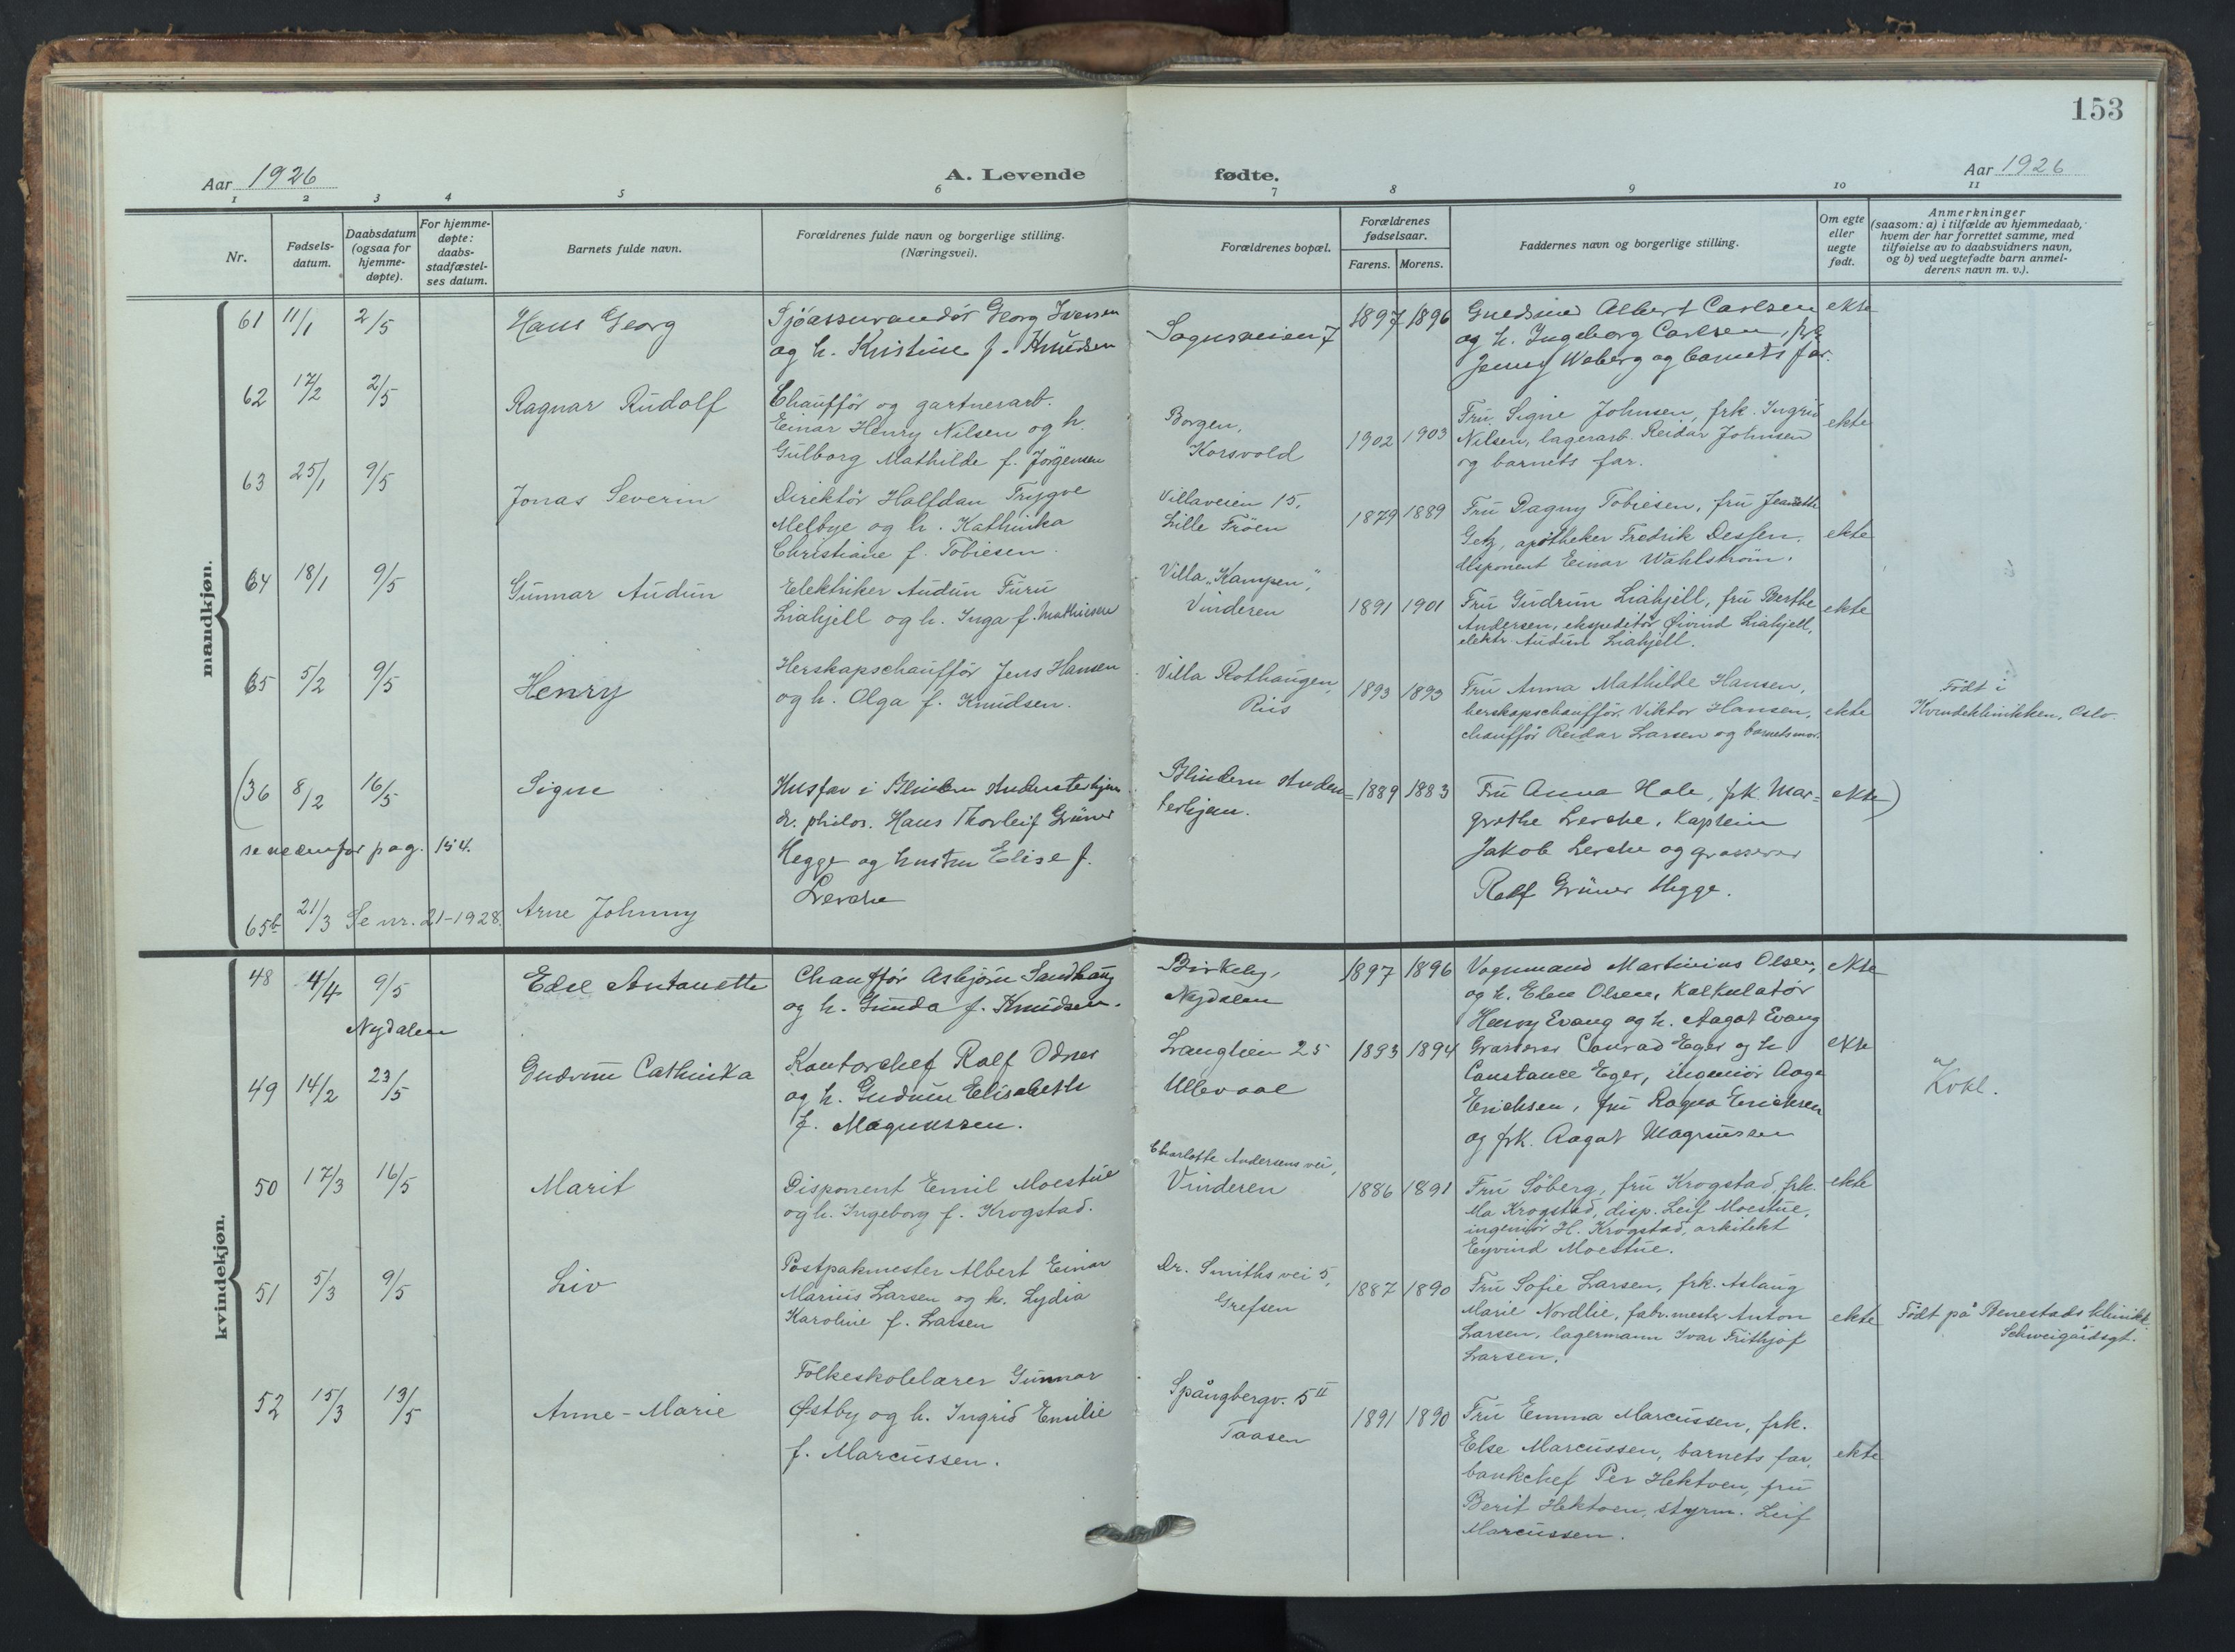 153
Aar 1926 A. Levende fødte. Aar 1926
1 2 3 4 5 6 7 8 9 10 11
Nr.
Fødsels-
datum.
Daabsdatum
(ogsaa for
hjemme-
døpte).
For hjemme-
døpte:
daabs-
stadfæstel-
ses datum.
Barnets fulde navn.
Forældrenes fulde navn og borgerlige stilling.
(Næringsvei).
Forældrenes bopæl.
Forældrenes
fødselsaar.
Farens. Morens.
Faddernes navn og borgerlige stilling.
Om egte
eller
uegte
født.
Anmerkninger
(saasom: a) i tilfælde av hjemmedaab,
hvem der har forrettet samme, med
tilføielse av to daabsvidners navn,
og b) ved uegtefødte barn anmel-
derens navn m. v.).
mandkjøn.
61 11/1 2/5 Hans Georg
Sjøassurandør Georg Iversen
og h. Kristine f. Knudsen
Sognsveien 7
1897 1896
Albert Carlsen
og h. Ingeborg Carlsen, frk.
Jenny Woberg og barnets far.
ekte
62 17/2 2/5 Ragnar Rudolf
Chauffør og gartnerarb.
Einar Henry Nilsen og h.
Gulborg Mathilde f. Jørgensen
Borgen,
Korsvold
1902 1903
Fru Signe Johnsen, frk. Ingrid
Nilsen, lagerarb. Reidar Johnsen
og barnets far.
ekte
63 25/1 9/5 Jonas Severin
Direktør Halfdan Trygve
Melbye og h. Kathinka
Christiane f. Tobiesen.
Villaveien 15,
Lille Frøen
1879 1889
Fru Dagny Tobiesen, fru Jeanette
Getz, apotheker Fredrik Dessen,
disponent Einar Wahlstrøm.
ekte
64 18/1 9/5 Gunnar Audun
Elektriker Audun Furu
Liahjell og h. Inga f. Mathisen
Villa „Kampen",
Vinderen
1891 1901
Fru Gudrun Liahjell, fru Berthe
Andersen, ekspeditør Øivind Liahjell,
elektr. Audun Liahjell.
ekte
65 5/2 9/5 Henry
Herskapschauffør Jens Hansen
og h. Olga f. Knudsen.
Villa Rothaugen,
Riis
1893 1893
Fru Anna Mathilde Hansen,
herskapschauffør Viktor Hansen,
chauffør Reidar Larsen og barnets mor.
ekte
Født i
Kvindeklinikken, Oslo.
(36 8/2 16/5 Signe
Husfar i Blindern studenterhjem
dr. philos. Hans Thorleif Grüner
Hegge og hustru Elise f.
Lerche
Blindern studen=
terhjem.
1889 1883
Fru Anna Hole, frk. Mar=
grethe Lerche, Kaptein
Jakob Lerche og grosserer
Rolf Grüner Hegge.
ekte)
se nedenfor pag. 154.
65b 21/3 Se nr. 21-1928. Arne Johnny
kvindekjøn.
48 4/4 9/5 Edel Antonette
Nydalen
Chauffør Asbjørn Sandhaug
og h. Gunda f. Knudsen.
Birkeby,
Nydalen
1897 1896
Vognmand Martinius Olsen,
og h. Elen Olsen, Kalkulatør
Henry Evang og h. Aagot Evang
ekte
49 14/2 23/5 Gudrun Cathinka
Kontorchef Rolf Odner
og h. Gudrun Elisabeth
f. Magnussen.
Langlien 25
Ullevaal
1893 1894
Grosserer Conrad Eger og h.
Constance Eger, ingeniør Aage
Erichsen, fru Ragna Erichsen
og frk. Aagot Magnussen
ekte
Kvkl.
50 17/3 16/5 Marit
Disponent Emil Moestue
og h. Ingeborg f. Krogstad.
Charlotte Andersens vei,
Vinderen
1886 1891
Fru Søberg, fru Krogstad, frk.
Ma Krogstad, disp. Leif Moestue,
ingeniør H. Krogstad, arkitekt
Eyvind Moestue.
ekte
51 5/3 9/5 Liv
Postpakmester Albert Einar
Marius Larsen og h. Lydia
Karoline f. Larsen
Dr. Smiths vei 5,
Grefsen
1887 1890
Fru Sofie Larsen, frk. Aslaug
Marie Nordlie, fabr.mester Anton
Larsen, lagermann Ivar Frithjof
Larsen.
ekte
Født på Benestads klinikk
Schweigårdsgt.
52 15/3 13/5 Anne-Marie
Folkeskolelærer Gunnar
Østby og h. Ingrid Emilie
f. Marcussen.
Spångbergv. 5 II
Taasen
1891 1890
Fru Emma Marcussen, frk.
Else Marcussen, barnets far,
bankchef Per Hektoen, fru
Berit Hektoen, styrm. Leif
Marcussen.
ekte